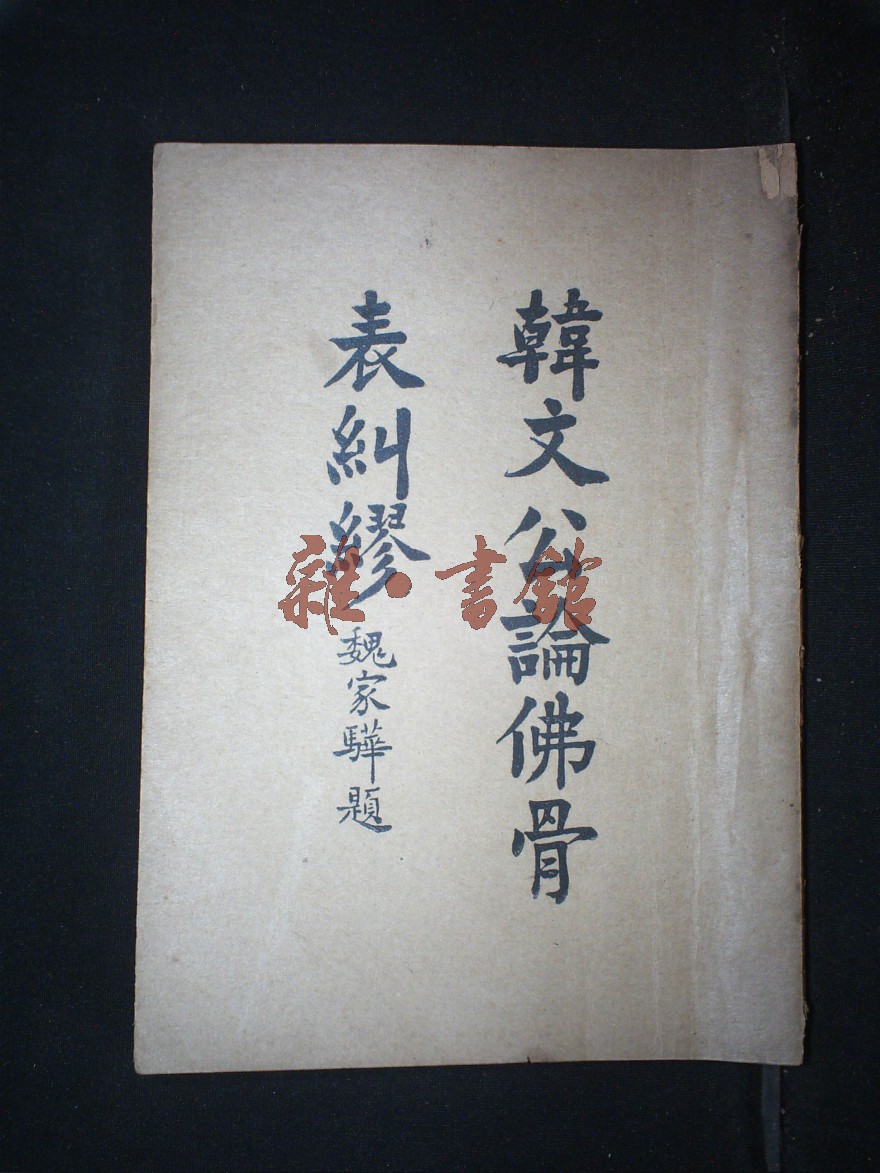 韓文公論佛骨
表糾繆
魏家驊題
雜·書館